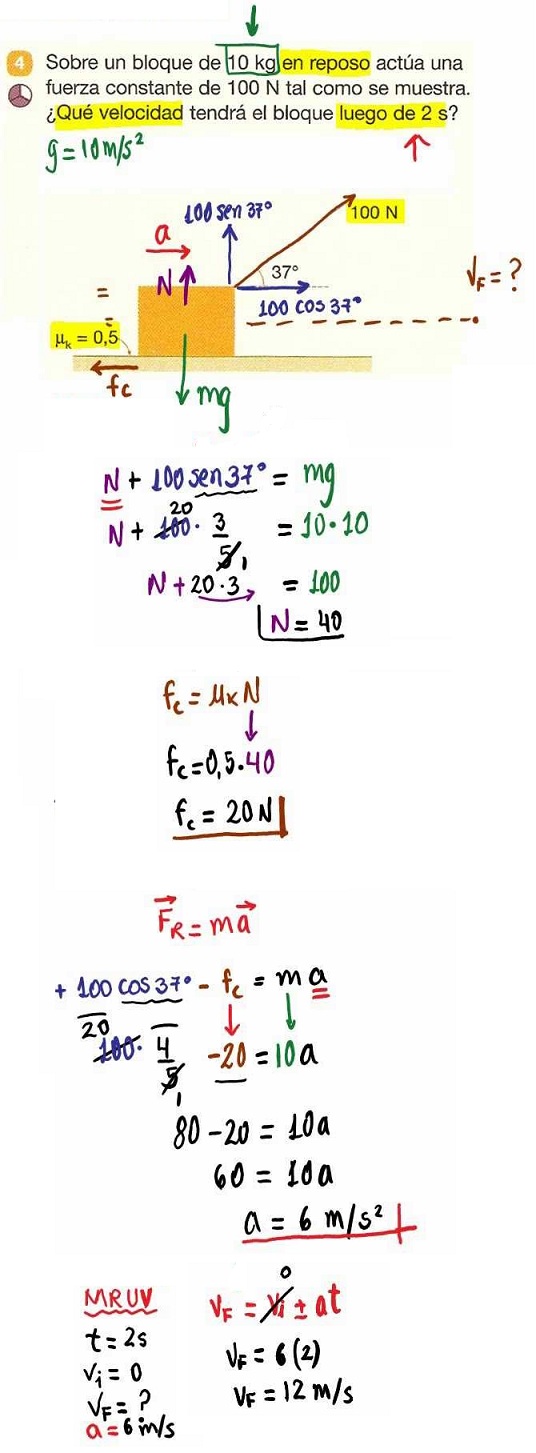 4 Sobre un bloque de 10 kg en reposo actúa una
fuerza constante de 100 N tal como se muestra.
¿Qué velocidad tendrá el bloque luego de 2 s?
g = 10 m/s²
100 sen 37°
100 N
a
N
37°
100 cos 37°
V_F = ?
=
μₖ = 0,5
fc
mg
N + 100 sen 37° = mg
20
N + 100 · 3/5 1 = 10·10
N + 20·3 = 100
N = 40
fc = μₖ N
fc = 0,5·40
fc = 20 N
F_R = ma
+ 100 cos 37° - fc = m a
20
100 · 4/5 1 - 20 = 10a
80 - 20 = 10a
60 = 10a
a = 6 m/s²
MRUV
t = 2s
Vi = 0
V_F = ?
a = 6 m/s
0
V_F = Vi ± at
V_F = 6(2)
V_F = 12 m/s